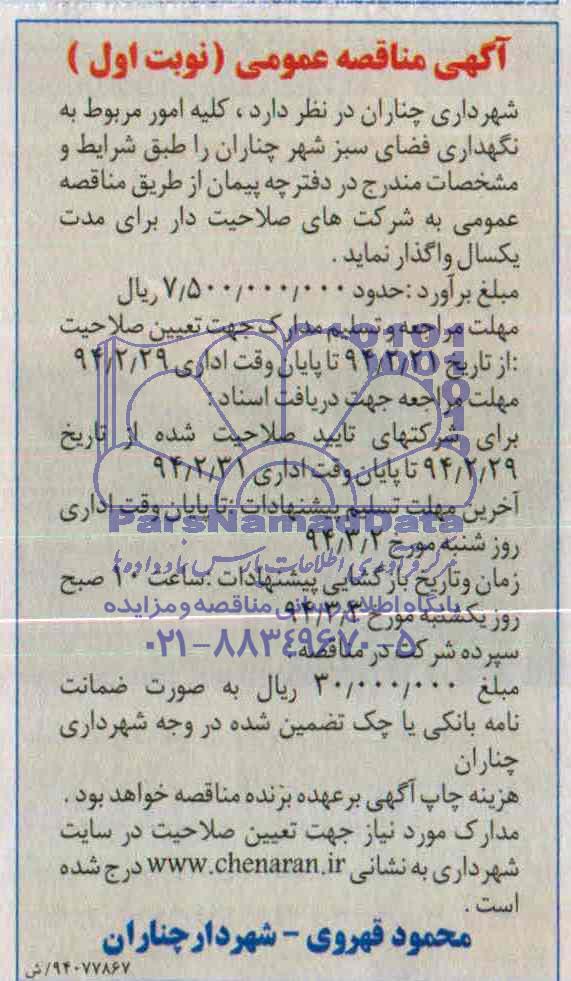 آگهی مناقصه عمومی (نوبت اول)
شهرداری چناران در نظر دارد ، کلیه امور مربوط به
نگهداری فضای سبز شهر چناران را طبق شرایط و
مشخصات مندرج در دفترچه پیمان از طریق مناقصه
عمومی به شرکت های صلاحیت دار برای مدت
یکسال واگذار نماید .
مبلغ برآورد :حدود ۷/۵۰۰/۰۰۰/۰۰۰ ریال
مهلت مراجعه و تسلیم مدارک جهت تعیین صلاحیت
:از تاریخ ۹۴/۲/۲۱ تا پایان وقت اداری ۹۴/۲/۲۹
مهلت مراجعه جهت دریافت اسناد :
برای شرکتهای تایید صلاحیت شده از تاریخ
۹۴/۲/۲۹ تا پایان وقت اداری ۹۴/۲/۳۱
آخرین مهلت تسلیم پیشنهادات :تا پایان وقت اداری
ParsNamadData
روز شنبه مورخ ۹۴/۳/۲
مرکز فرآوری اطلاعات پارس نماد داده ها
زمان وتاریخ بازگشایی پیشنهادات :ساعت ۱۰ صبح
پایگاه اطلاع رسانی مناقصه و مزایده
روز یکشنبه مورخ ۹۴/۳/۳
۰۲۱-۸۸۳۴۹۶۷۰-۵
سپرده شرکت در مناقصه :
مبلغ ۳۰/۰۰۰/۰۰۰ ریال به صورت ضمانت
نامه بانکی یا چک تضمین شده در وجه شهرداری
چناران
هزینه چاپ آگهی برعهده برنده مناقصه خواهد بود .
مدارک مورد نیاز جهت تعیین صلاحیت در سایت
شهرداری به نشانی www.chenaran.ir درج شده
است .
محمود قهروی - شهردار چناران
۹۴۰۷۷۸۶۷/ش